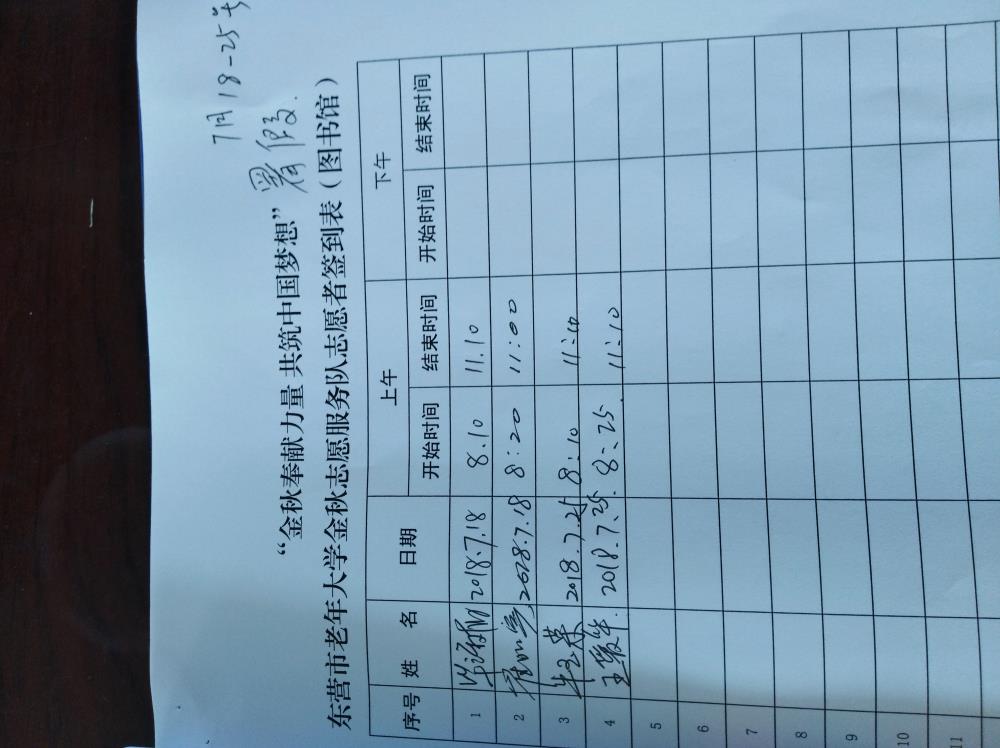 7月18-25号
暑假.
“金秋奉献力量 共筑中国梦想”
东营市老年大学金秋志愿服务队志愿者签到表（图书馆）
序号 姓 名 日期 上午 下午
开始时间 结束时间 开始时间 结束时间
1 2018.7.18 8.10 11.10
2 2018.7.18 8:20 11:00
3 2018.7.25 8:10 11:10
4 王 2018.7.25. 8:25. 11:10
5
6
7
8
9
10
11